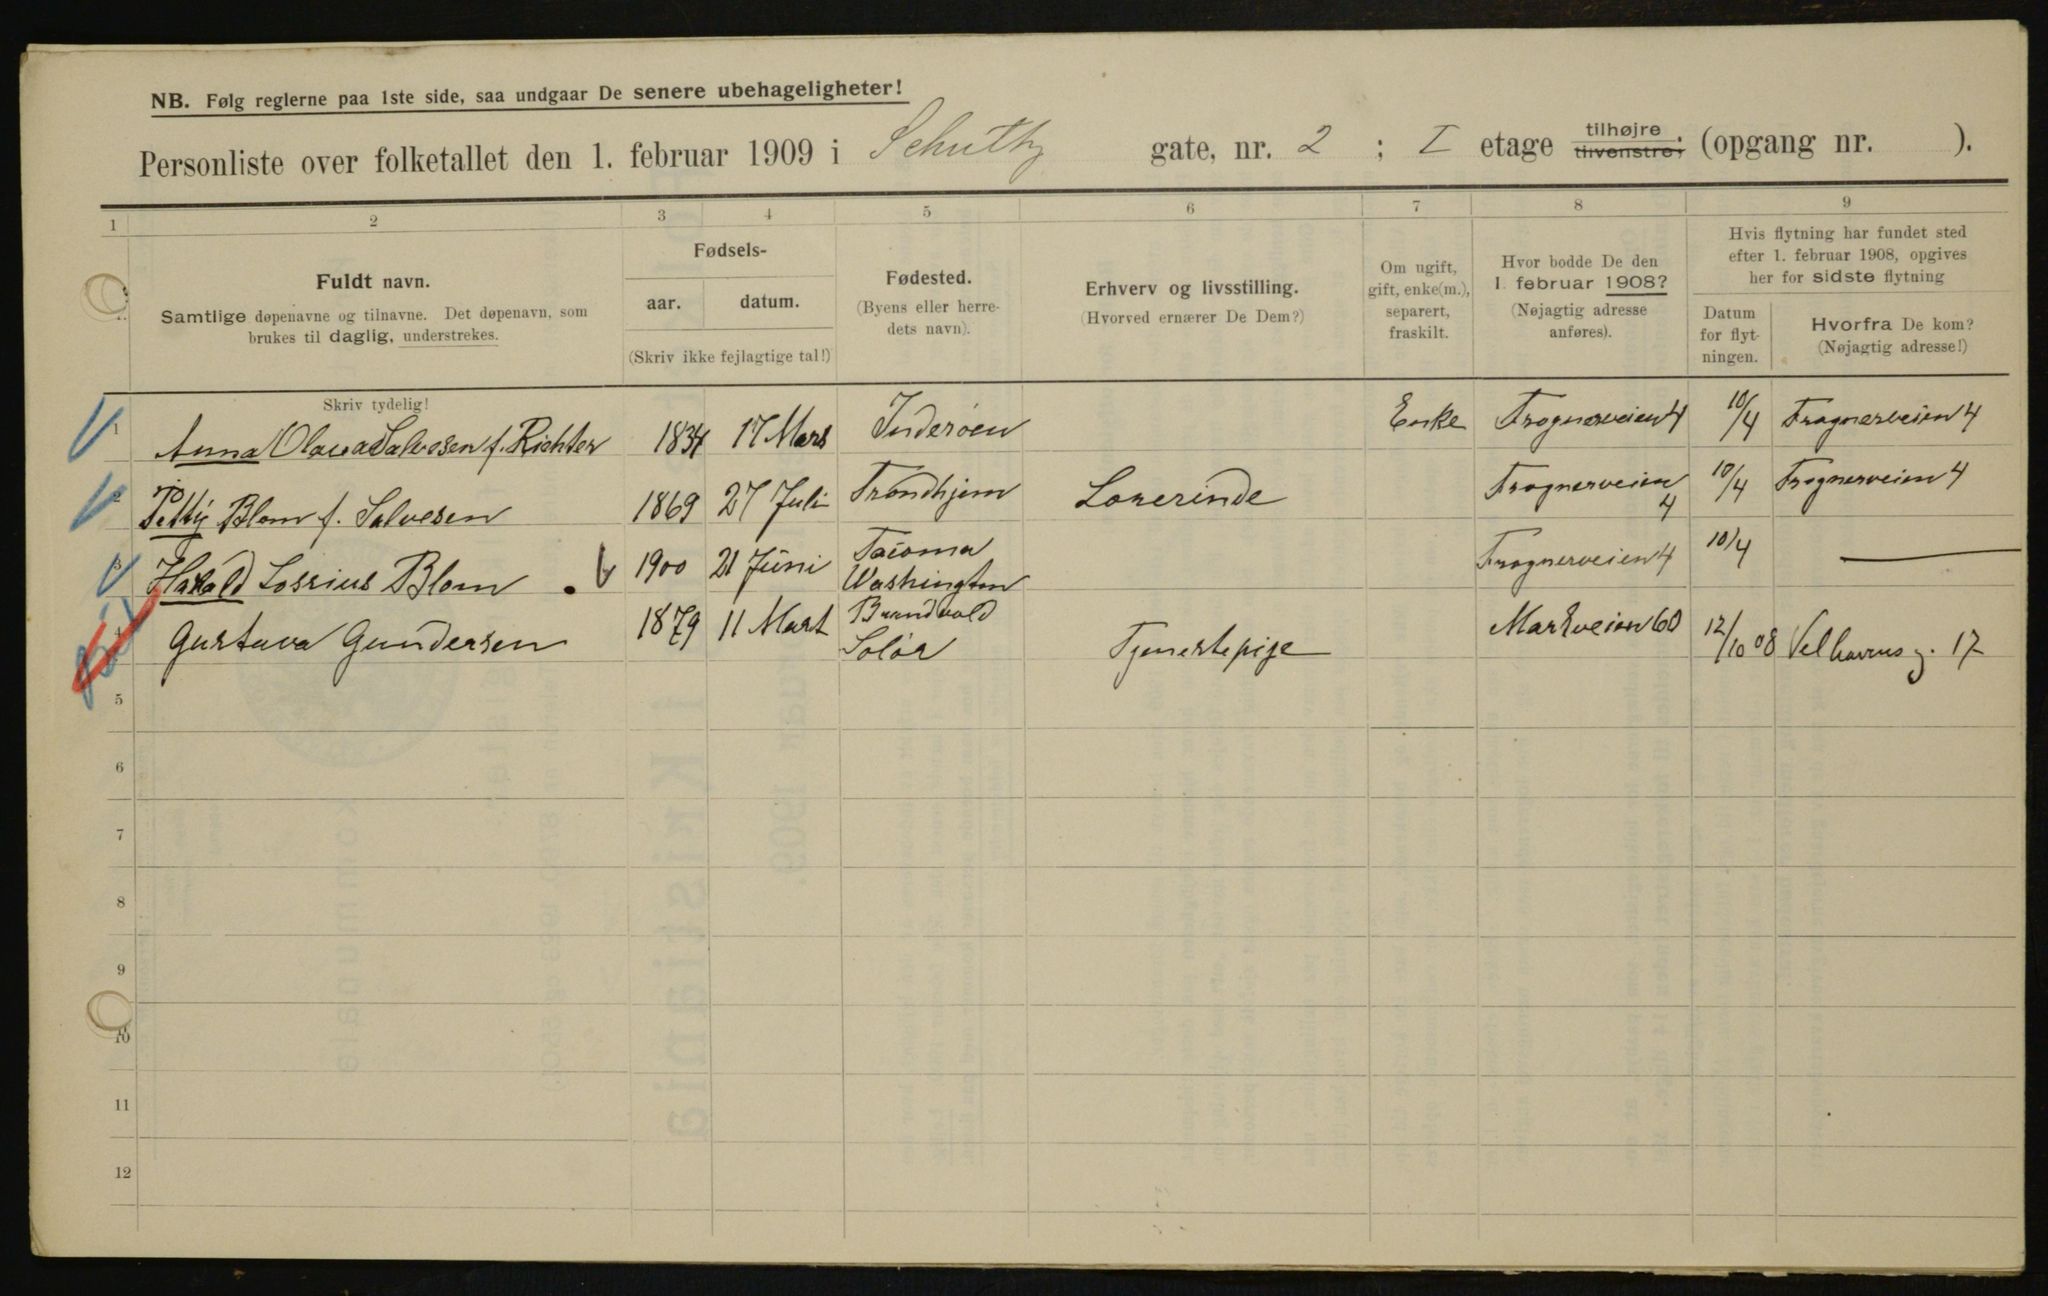 NB. Følg reglerne paa 1ste side, saa undgaar De senere ubehageligheter!
Personliste over folketallet den 1. februar 1909 i Schultz gate, nr. 2 ; I etage tilhøjre. tilvenstre; (opgang nr. ).
1 2 3 4 5 6 7 8 9
Fuldt navn.
Samtlige døpenavne og tilnavne. Det døpenavn, som
brukes til daglig, understrekes.
Fødsels-
aar. datum.
(Skriv ikke fejlagtige tal!)
Fødested.
(Byens eller herre-
dets navn).
Erhverv og livsstilling.
(Hvorved ernærer De Dem?)
Om ugift,
gift, enke(m.),
separert,
fraskilt.
Hvor bodde De den
1. februar 1908?
(Nøjagtig adresse
anføres).
Hvis flytning har fundet sted
efter 1. februar 1908, opgives
her for sidste flytning
Datum
for flyt-
ningen.
Hvorfra De kom?
(Nøjagtig adresse!)
Skriv tydelig!
1 Anna Olava Salvesen f. Richter 1834 17 Mars Inderøen Enke Frognerveien 4 10/4 Frognerveien 4
2 Petty Blom f. Salvesen 1869 27 Juli Trondhjem Lærerinde Frognerveien 4 10/4 Frognerveien 4
3 Harald Lossius Blom 1900 21 Juni Tacoma Washington Frognerveien 4 10/4 —
4 Gustava Gundersen 1879 11 Mart Brandvold Solør Tjenestepige Markveien 60 12/10 08 Velhavens g. 17
5
6
7
8
9
10
11
12